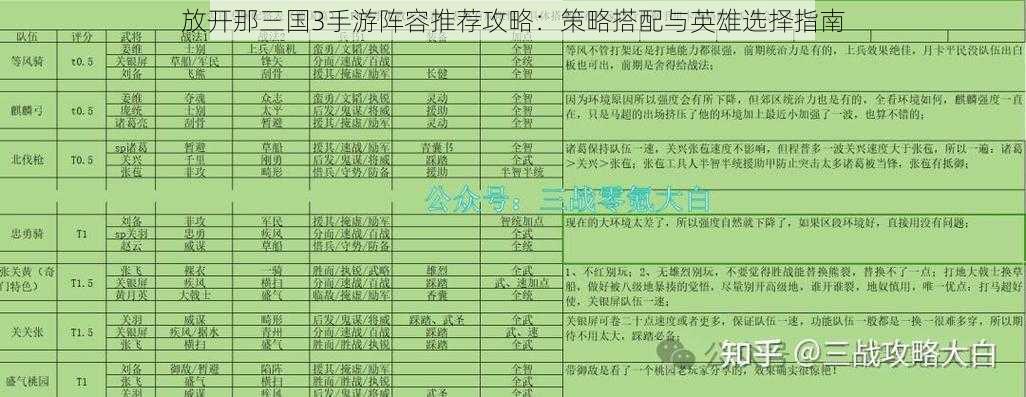 放开那三国3手游阵容推荐攻略：策略搭配与英雄选择指南
队伍 评分 武将 战法1 加点
等风骑 t0.5 姜维 士别 上兵/临机 蛮勇/文韬/执锐 全智
关银屏 草船/军民 锋矢 分面/速战/百战 全统
刘备 飞熊 刮骨 援其/掩虚/励军 长健 全智
等风不管打架还是打地能力都很强，前期统治力是有的，上兵效果绝佳，月卡平民没队伍出白
板也可出，前期是舍得给战法；
麒麟弓 t0.5 姜维 夺魂 众志 蛮勇/文韬/执锐 灵动 全智
庞统 士别 太平 后发/鬼谋/将威 灵动 全智
诸葛亮 刮骨 暂避 援其/掩虚/励军 灵动 全智
因为环境原因所以强度会有所下降，但郊区统治力也是有的，全看环境如何，麒麟强度一直
在，只是马超的出场挤压了他的环境加上最近小加强了一波，也算不错的；
北伐枪 T0.5 sp诸葛 暂避 草船 援其/速战/励军 青囊书 全智
关兴 千里 刚勇 后发/鬼谋/将威 踩踏 全武
张苞 非攻 畸形 后发/鬼谋/将威 援助 半智半统
诸葛保持队伍一速，关兴张苞速度不影响，但程普多一波关兴速度大于张苞，所以一遍：诸葛
>关兴>张苞；张苞工具人半智半统援助甲防止突击太多诸葛被当锋，张苞有抵御；
公众号：三战零氪大白
忠勇骑 T1 刘备 非攻 军民 援其/掩虚/励军 智统加点
sp关羽 忠勇 疾风 分面/速战/百战 全武
赵云 威谋 草船 借兵/守势/防备 全统
现在的大环境太差了，所以强度自然就下降了，如果区段环境好，直接用没有问题；
张关黄（奇门特色） T1.5 张飞 裸衣 一骑 胜而/执锐/武略 雄烈 全武
关银屏 疾风 横扫 分面/速战/百战 踩踏 武、速加点
黄月英 大戟士 盛气 临敌/掩虚/励军 香囊 全统
1、不红别玩；2、无雄烈别玩，不要觉得胜战能替换熊裂，替换不了一点；打地大戟士换草
船，做好被八级地暴揍的觉悟，尽量别开高级地，谁开谁裂，地奴慎用，唯一优点：打马超好
使，关银屏队伍一速；
关关张 T1.5 关羽 威谋 畸形 后发/鬼谋/将威 踩踏、武圣 全武
关银屏 疾风/据水 青州 分面/速战/百战 踩踏 武、速
张飞 横扫 盛气 胜而/执锐/防备 踩踏 全武
关银屏可卷二十点速度或者更多，保证队伍一速，功能队伍一般都是一换一很难多穿，所以期
待不用太大，踩踏必备；
盛气桃园 T1 刘备 御敌/暂避 陷阵 援其/掩虚/励军 全智
张飞 盛气 横扫 胜而/执锐/防备 全武
关羽 威谋 畸形 后发/鬼谋/将威 武圣 全武
带御敌是看了一个桃园老玩家分享的，效果确实很惊艳！
知乎 @三战攻略大白